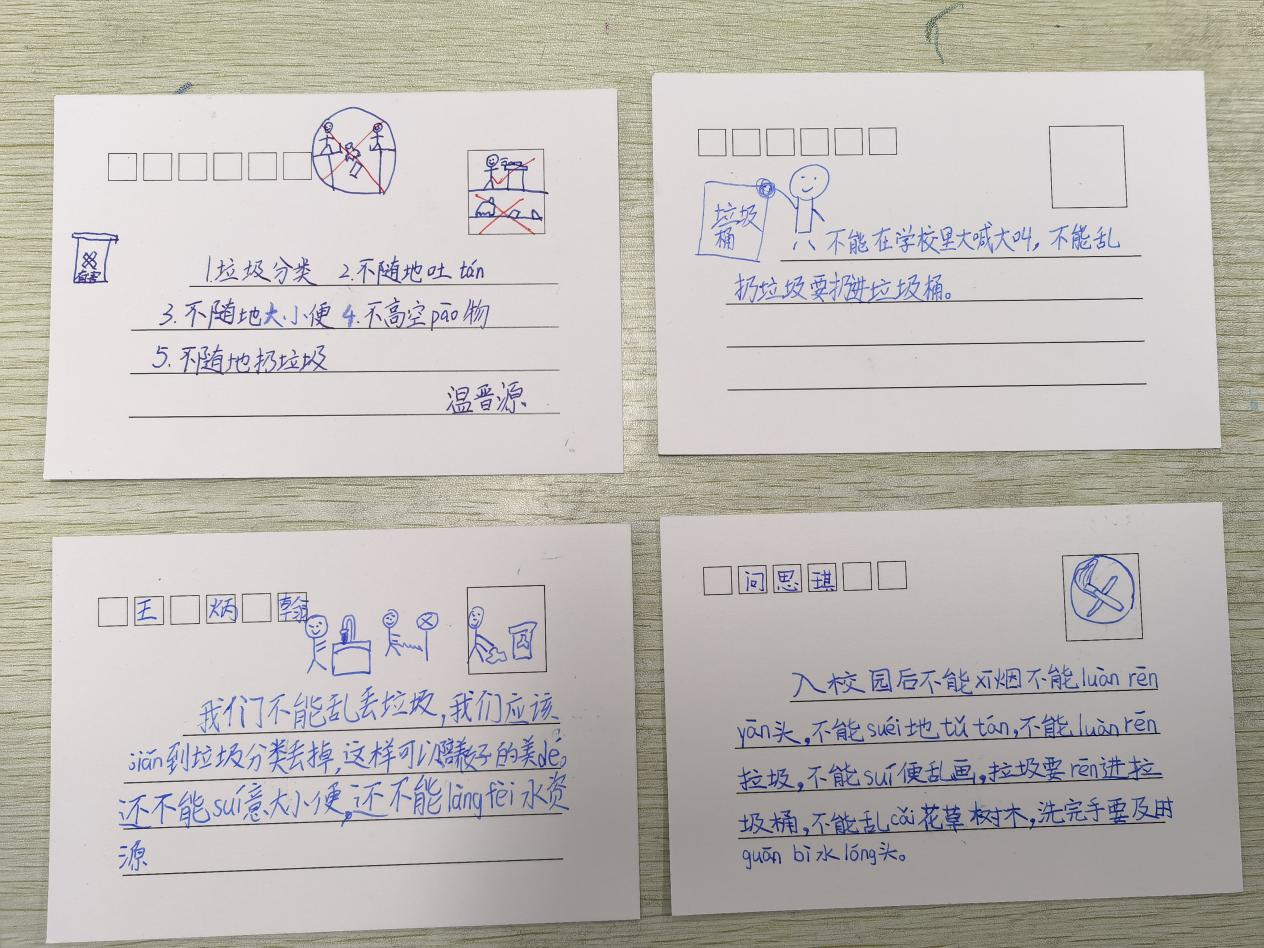 有害
1.垃圾分类 2.不随地吐tán
3.不随地大小便 4.不高空pāo物
5.不随地扔垃圾
温晋源
垃圾
桶
不能在学校里大喊大叫，不能乱
扔垃圾要扔进垃圾桶。
王炳翰
我们不能乱丢垃圾，我们应该
jiǎn到垃圾分类丢掉，这样可以养好的美dé。
还不能suí意大小便，还不能làngfèi水资
源
问思琪
入校园后不能xī烟不能luàn rēn
yān头，不能suéi地tǔ tán，不能luàn rēn
拉圾，不能suí便乱画，拉圾要rēn进拉
圾桶，不能乱cǎi花草树木，洗完手要及时
guān bì水lóng头。